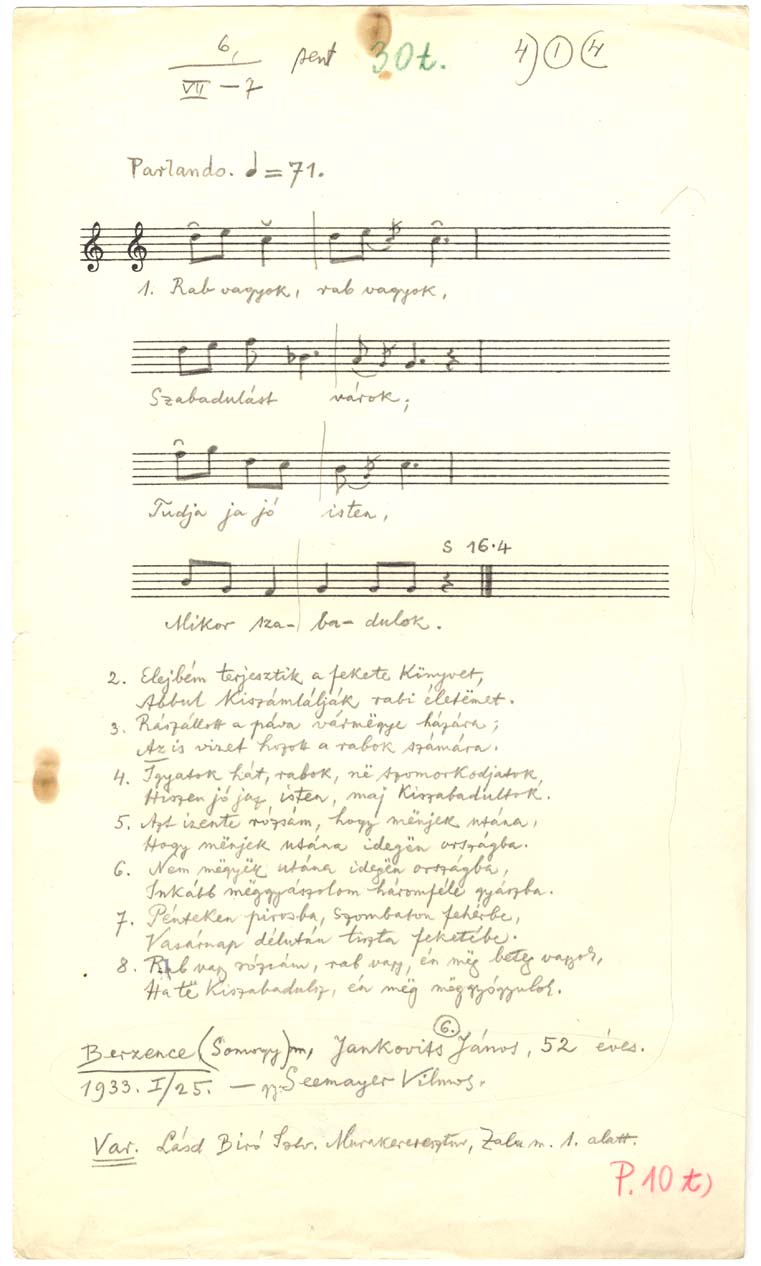 6, pent 30t. 4) 1 (4
VII – 7
Parlando. ♩ = 71.
1. Rab vagyok, rab vagyok,
Szabadulást várok;
Tudja ja jó isten,
S 16·4
Mikor sza- ba- dulok.
2. Elejbém terjesztik a fekete könyvet,
Abbul kiszámlálják rabi életëmet.
3. Rászállott a páva vármëgye házára;
Az is vizet hozott a rabok számára.
4. Igyatok hát, rabok, në szomorkodjatok,
Hiszen jó jaz isten, maj kiszabadultok.
5. Azt izente rózsám, hogy mënjek utána,
Hogy mënjek utána idegën országba.
6. Nem mëgyëk utána idegën országba,
Inkább mëggyászolom háromféle gyászba.
7. Pénteken pirosba, szombaton fehérbe,
Vasárnap délután tiszta feketébe.
8. Rab vagy rózsám, rab vagy, én mëg beteg vagyok,
Ha të kiszabadulsz, én mëg mëggyógyulok.
Berzence (Somogy) m, Jankovits János, 52 éves.
6.
1933. I/25. – gy. Seemayer Vilmos.
Var. Lásd Biró Istv. Murakeresztur, Zala m. 1. alatt.
P. 10 t)